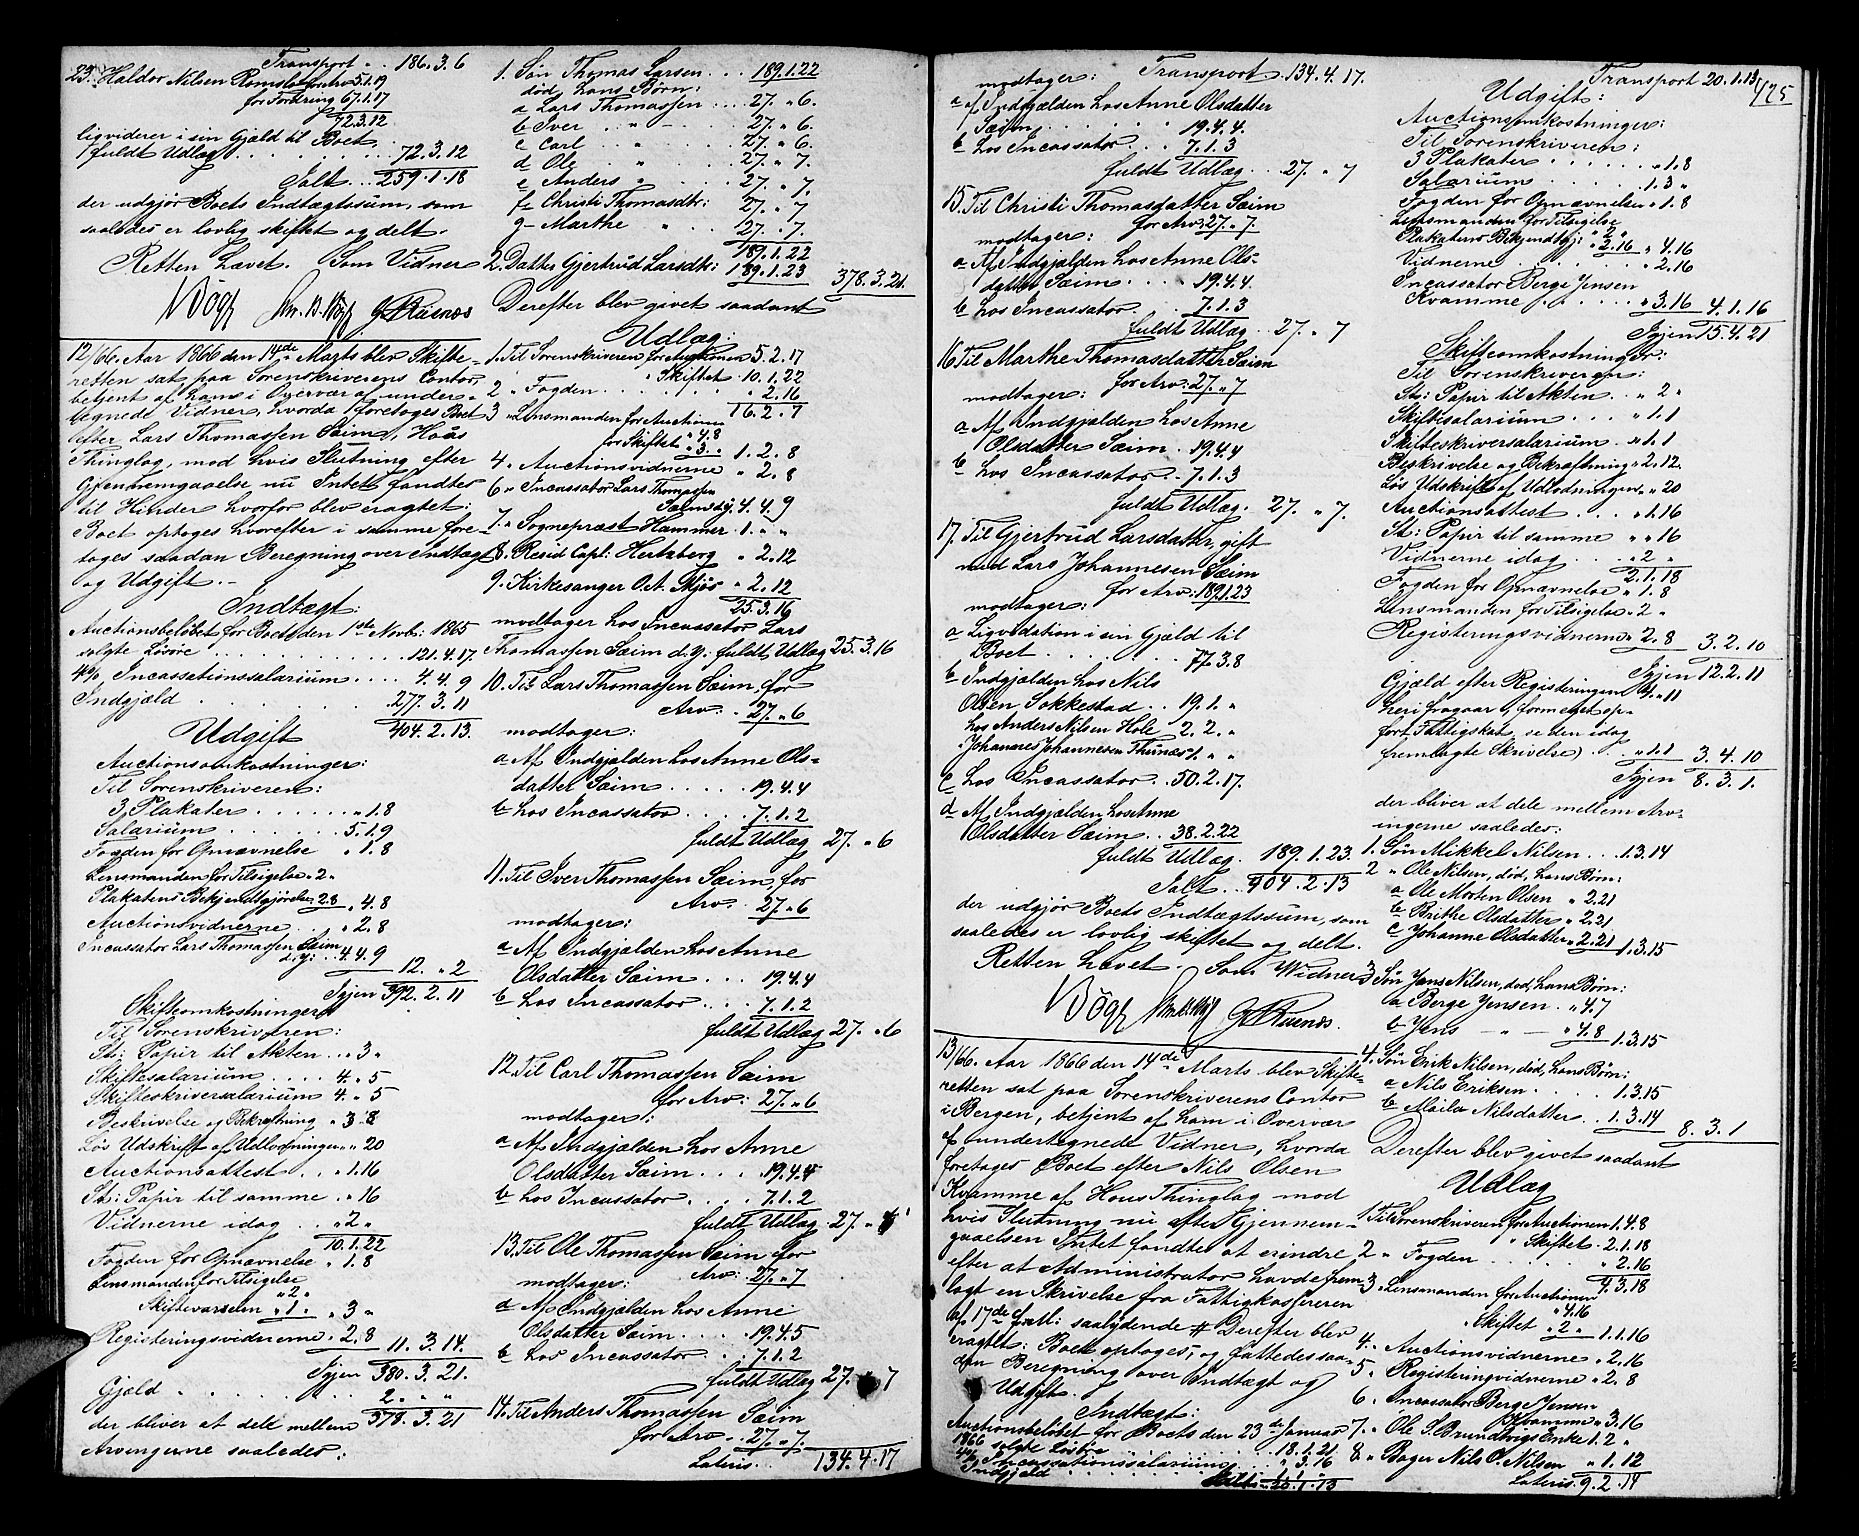 Transport . . 186.3.6
23. Haldor Nilsen Romslo for Arv 5.1.19
for Fordring 67.1.17
72.3.12
liqviderer i sin Gjæld til Boet
fuldt Udlæg . . . . . . . 72.3.12
Ialt . . 259.1.18
der udgjør Boets Indtægtssum, som
saaledes er lovlig skiftet og delt.
Retten hævet. Som Vidner
12/66. Aar 1866 den 14de Marts blev Skifte-
retten sat paa Sorenskriverens Contor,
betjent af ham i Overvær af under-
tegnede Vidner, hvorda foretoges Boet
efter Lars Thomassen Sæim, Hous
Thinglag, mod hvis Slutning efter
Gjennemgaaelse nu Intet fandtes
til Hinder hvorfor blev eragtet:
Boet optages hvorefter i samme fore-
toges saadan Beregning over Indtægt
og Udgift. -
Indtægt:
Auctionsbeløbet for Boets den 1ste Novb: 1865
solgte Løsøre . . . . . . . 121.4.17
4% Incassationssalarium . . . . 4.4.9
Indgjæld . . . . . . . 277.3.11
404.2.13.
Udgift
Auctionsomkostninger:
Til Sorenskriveren:
3 Plakater . . . . . . „ 1.8
Salarium . . . . . . 5.1.9
Fogden for Opnævnelse „ 1.8
Lensmanden for Tilsigelse „ 2 „
Plakatens Bekjendtgjørelse 2.8 „ 4.8
Auctionsvidnerne . . „ 2.8
Incassator Lars Thomassen Sæim
d. y: . . 4.4.9
12. „ 2
Igjen 392.2.11
Skifteomkostninger
Til Sorenskriveren:
St: Papir til Akten . . „ 3 „
Skiftesalarium . . . . 4. „ 5
Skifteskriversalarium 4. „ 5
Beskrivelse og Bekræftning „ 3.8
Løs Udskrift af Udlodningen „ „ 20
Auctionsattest . . „ 1.16
St: Papir til samme . . „ 16
Vidnerne idag . . „ 2 „
10.1.22
Fogden for Opnævnelse „ 1.8
Lensmanden for Tilsigelse
„ 2 „
Skiftevarselen „ 1 „ „ 3 „
Registeringsvidnerne „ 2.8 11.3.14.
Igjen 380.3.21.
Gjæld . . . . . . . 2. „ „
der bliver at dele mellem 378.3.21
Arvingerne saaledes:
1. Søn Thomas Larsen . . . 189.1.22
død, hans Børn:
a Lars Thomassen . . . 27. „ 6.
b Iver „ „ 27. „ 6
c Carl „ „ 27. „ 6.
d Ole „ „ 27. „ 7.
e Anders „ 27. „ 7.
f Christi Thomasdtr: 27. „ 7
g Marthe „ 27. „ 7.
189.1.22
2. Datter Gjertrud Larsdtr: 189.1.23 378.3.21.
Derefter blev givet saadant
Udlæg:
1. Til Sorenskriveren for Auctionen 5.2.17
„ Skiftet . 10.1.22
2 „ Fogden . . . . . . „ 2.16
16.2.7
3 „ Lensmanden for Auctionen
„ 4.8
for Skiftet „ 3. „ 1.2.8
4 „ Auctionsvidnerne „ 2.8
6 „ Incassator Lars Thomassen
Sæim d.y. 4.4.9
7. „ Sognepræst Hammer . 1. „ „
8. „ Resid Capl: Hertzberg „ 2.12
9. „ Kirkesanger O. A. Mjøs „ 2.12
25.3.16
modtager hos Incassator Lars
Thomassen Sæim d.y. fuldt Udlæg 25.3.16
10. Til Lars Thomassen Sæim for
Arv . 27. „ 6
modtager:
a Af Indgjælden hos Anne Ols-
datter Sæim . . . . . 19.4.4
b hos Incassator . . . 7.1.2
fuldt Udlæg 27. „ 6
11. Til Iver Thomassen Sæim, for
Arv . 27. „ 6
modtager:
a Af Indgjælden hos Anne
Olsdatter Sæim . . . 19.4.4
b hos Incassator . . . 7.1.2
fuldt Udlæg 27. „ 6
12. Til Carl Thomassen Sæim
for Arv: 27. „ 6
modtager:
a Af Indgjælden hos Anne
Olsdatter Sæim . . . 19.4.4
b hos Incassator . . . . 7.1.2
fuldt Udlæg . 27. „ 6
13. Til Ole Thomassen Sæim for
Arv: 27. „ 7
modtager:
a Af Indgjælden hos Anne
Olsdatter Sæim . . . . 19.4.5
b hos Incassator . . . 7.1.2
fuldt Udlæg 27. „ 7
14. Til Anders Thomassen Sæim
for Arv . . 27. „ 7.
Lateris . . . 134.4.17
Transport . 134.4.17.
modtager:
a af Indgjælden hos Anne Olsdatter
Sæim . . . . . . . 19.4.4.
b hos Incassator . . . 7.1.3
fuldt Udlæg . . . 27. „ 7
15. Til Christi Thomasdatter Sæim
for Arv: 27. „ 7.
modtager:
a Af Indgjælden hos Anne Ols-
datter Sæim . . . . 19.4.4
b hos Incassator . . . 7.1.3
fuldt Udlæg . . 27. „ 7
16. Til Marthe Thomasdatter Sæim
for Arv: 27. „ 7
modtager:
a Af Indgjælden hos Anne
Olsdatter Sæim . 19.4.4
b hos Incassator . . 7.1.3
fuldt Udlæg . 27. „ 7.
17. Til Gjertrud Larsdatter, gift
med Lars Johannesen Sæim
for Arv: 189.1.23
modtager:
a Liqvidation i sin Gjæld til
Boet . . . . . . . 77.3.8
b Indgjælden hos Nils
Olsen Sokkestad . . 19.1. „
hos Anders Nilsen Hole 2.2. „
„ Johannes Johannesen Thunæs 1. „ „
c hos Incassator . . 50.2.17.
d Af Indgjælden hos Anne
Olsdatter Sæim . . 38.2.22
fuldt Udlæg . 189.1.23.
Ialt . . 404.2.13
der udgjør Boets Indtægtssum, som
saaledes er lovlig skiftet og delt.
Retten hævet. Som Vidner
13/66. Aar 1866 den 14de Marts blev Skifte-
retten sat paa Sorenskriverens Contor
i Bergen, betjent af ham i Overvær
af undertegnede Vidner, hvorda
foretoges Boet efter Nils Olsen
Kvamme af Hous Thinglag mod
hvis Slutning nu efter Gjennem-
gaaelsen Intet fandtes at erindre
efter at Administrator havde frem-
lagt en Skrivelse fra Fattigkassereren
af 17de f. M: saalydende # Derefter blev
eragtet: Boet optages, og fattedes saa-
dan Beregning over Indtægt og
Udgift.
Indtægt:
Auctionsbeløbet for Boets den 23de Januar
1866 solgte Løsøre . . . . . . 18.1.21
4% Incassationssalarium . . . . „ 3.16
Indgjæld . . . . . . .
20.1.13
Transport 20.1.13
125
Udgift:
Auctionsomkostninger:
Til Sorenskriveren:
3 Plakater . . . . . . „ 1.8
Salarium . . . . . . 1.3 „
Fogden for Opnævnelse „ 1.8
Lensmanden for Tilsigelse
„ 2 „
Plakatens Bekjendtgj: „ 2.16 „ 4.16
Vidnerne . . . . . . „ 2.16
Incassator Berge Jensen
Kvamme . . . . . . „ 3.16 4.1.16
Igjen 15.4.21
Skifteomkostninger:
Til Sorenskriveren:
St: Papir til Akten . . „ 2 „
Skiftesalarium . . . „ 1.1
Skifteskriversalarium . „ 1.1
Beskrivelse og Bekræftning „ 2.12.
Løs Udskrift af Udlodningen „ „ 20
Auctionsattest . . . „ 1.16
St: Papir til samme „ „ 16
Vidnerne idag . . . „ 2 „
2.1.18
Fogden for Opnævnelse „ 1.8
Lensmanden for Tilsigelse „ 2 „
Registeringsvidnerne „ 2.8 3.2.10
Igjen 12.2.11
Gjæld efter Registeringen 4. „ 11
heri fragaar formeget op-
ført Fattigskat, se den idag
fremlagte Skrivelse) . . „ 1.1 3.4.10
Igjen 8.3.1.
der bliver at dele mellem Arv-
ingerne saaledes:
1. Søn Mikkel Nilsen . . . 1.3.14
2 „ Ole Nilsen, død, hans Børn:
a Ole Morten Olsen „ 2.21
b Brithe Olsdatter „ 2.21
c Johanne Olsdatter „ 2.21 1.3.15
3 Søn Jens Nilsen, død, hans Børn:
a Berge Jensen . . „ 4.7
b Jens — „ — „ 4.8 1.3.15
4. Søn Erik Nilsen, død, hans Børn:
a Nils Eriksen . . . . 1.3.15
b Nilsdatter . . 1.3.14 8.3.1
Derefter blev givet saadant
Udlæg
1 Til Sorenskriveren for Auctionen 1.4.8
„ Skiftet . 2.1.18
2 „ Fogden . . . . . . „ 2.16
4.3.18
3 „ Lensmanden for Auctionen
„ 4.16
„ Skiftet „ 2 „ 1.1.16
4. „ Auctionsvidnerne „ 2.16
5 „ Registeringvidnerne „ 2.8
6 „ Incassator Berge Jensen
Kvamme „ 3.16
7. „ Ole S. Brundtvigs Enke 1.2 „
8 „ Bager Nils O. Nilsen „ 1.12
Lateris . 9.2.14